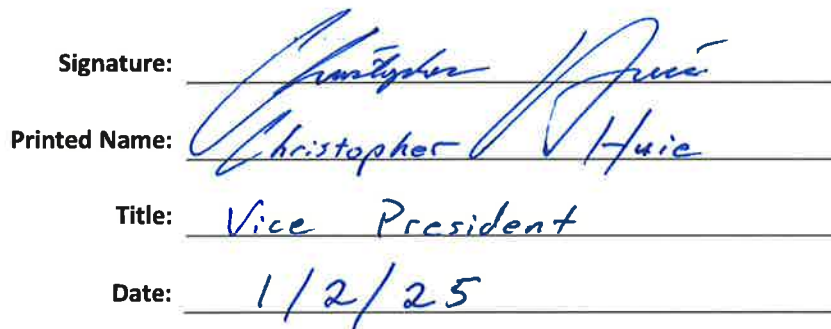 Signature: Christopher Huie
Printed Name: Christopher Huie
Title: Vice President
Date: 1/2/25